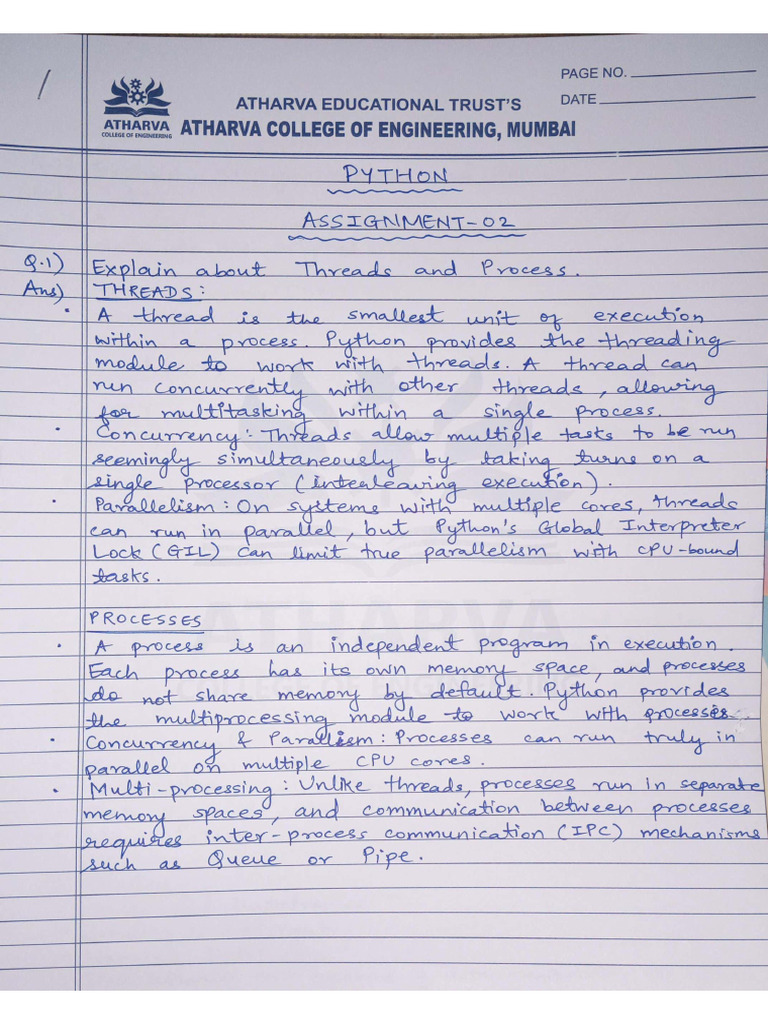 PAGE NO.
DATE
/
ATHARVA
COLLEGE OF ENGINEERING
ATHARVA EDUCATIONAL TRUST'S
ATHARVA COLLEGE OF ENGINEERING, MUMBAI
PYTHON
ASSIGNMENT-02
Q.1) Explain about Threads and Process.
Ans) THREADS:
• A thread is the smallest unit of execution
within a process. Python provides the threading
module to work with threads. A thread can
run concurrently with other threads, allowing
for multitasking within a single process.
• Concurrency: Threads allow multiple tasks to be run
seemingly simultaneously by taking turns on a
single processor (interleaving execution).
• Parallelism: On systems with multiple cores, threads
can run in parallel, but Python's Global Interpreter
Lock (GIL) can limit true parallelism with CPU-bound
tasks.
ATHARVA
PROCESSES
• A process is an independent program in execution.
Each process has its own memory space, and processes
COLLEGE OF ENGINEERING
do not share memory by default. Python provides
the multiprocessing module to work with processes.
• Concurrency & Parallism: Processes can run truly in
parallel on multiple CPU cores.
• Multi-processing: Unlike threads, processes run in separate
memory spaces, and communication between processes
requires inter-process communication (IPC) mechanisms
such as Queue or Pipe.